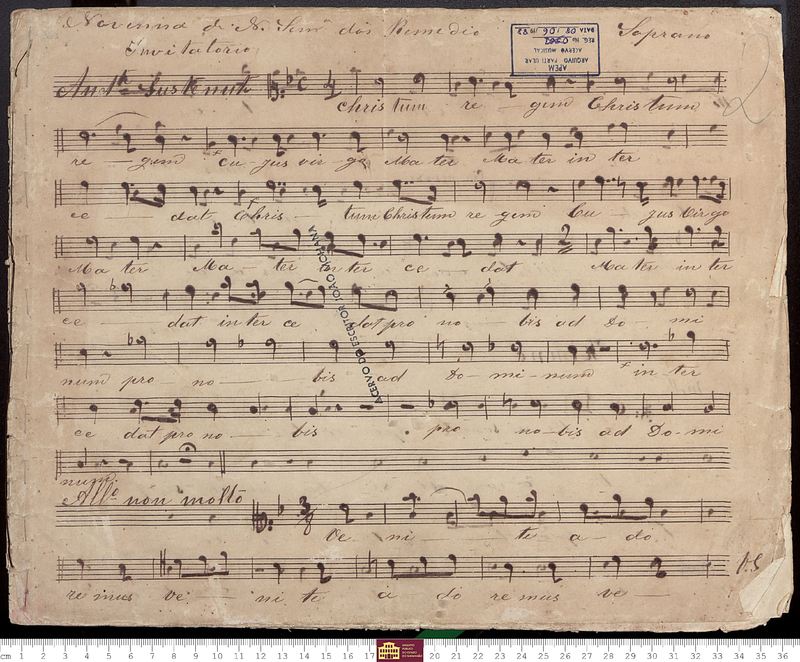 Novenna de N. Senr.ª dos Remedio Soprano
Invitatorio
2
APEM
ARQUIVO PARTICULAR
ACERVO MUSICAL
REG. Nº
DATA 09/06/
And.te Sustenuto
Christum re - gem Christum
re - gem cu - jus vir - go Ma ter Ma ter in ter
ce - dat Chris - tum Christum re gem Cu - jus Virgo
Ma ter Ma - ter in ter ce - dat Ma ter in ter
ce dat in ter ce dat pro no - bis ad Do mi
num pro no - bis ad Do - mi - num in ter
ce dat pro no - bis pro no - bis ad Do - mi
num.
All.º non molto
Ve ni - te a - do
re mus ve - ni te a do re mus ve -
ACERVO DO ESCRITOR JOÃO MOHANA
cm 1 2 3 4 5 6 7 8 9 10 11 12 13 14 15 16 17 20 21 22 23 24 25 26 27 28 29 30 31 32 33 34 35 36